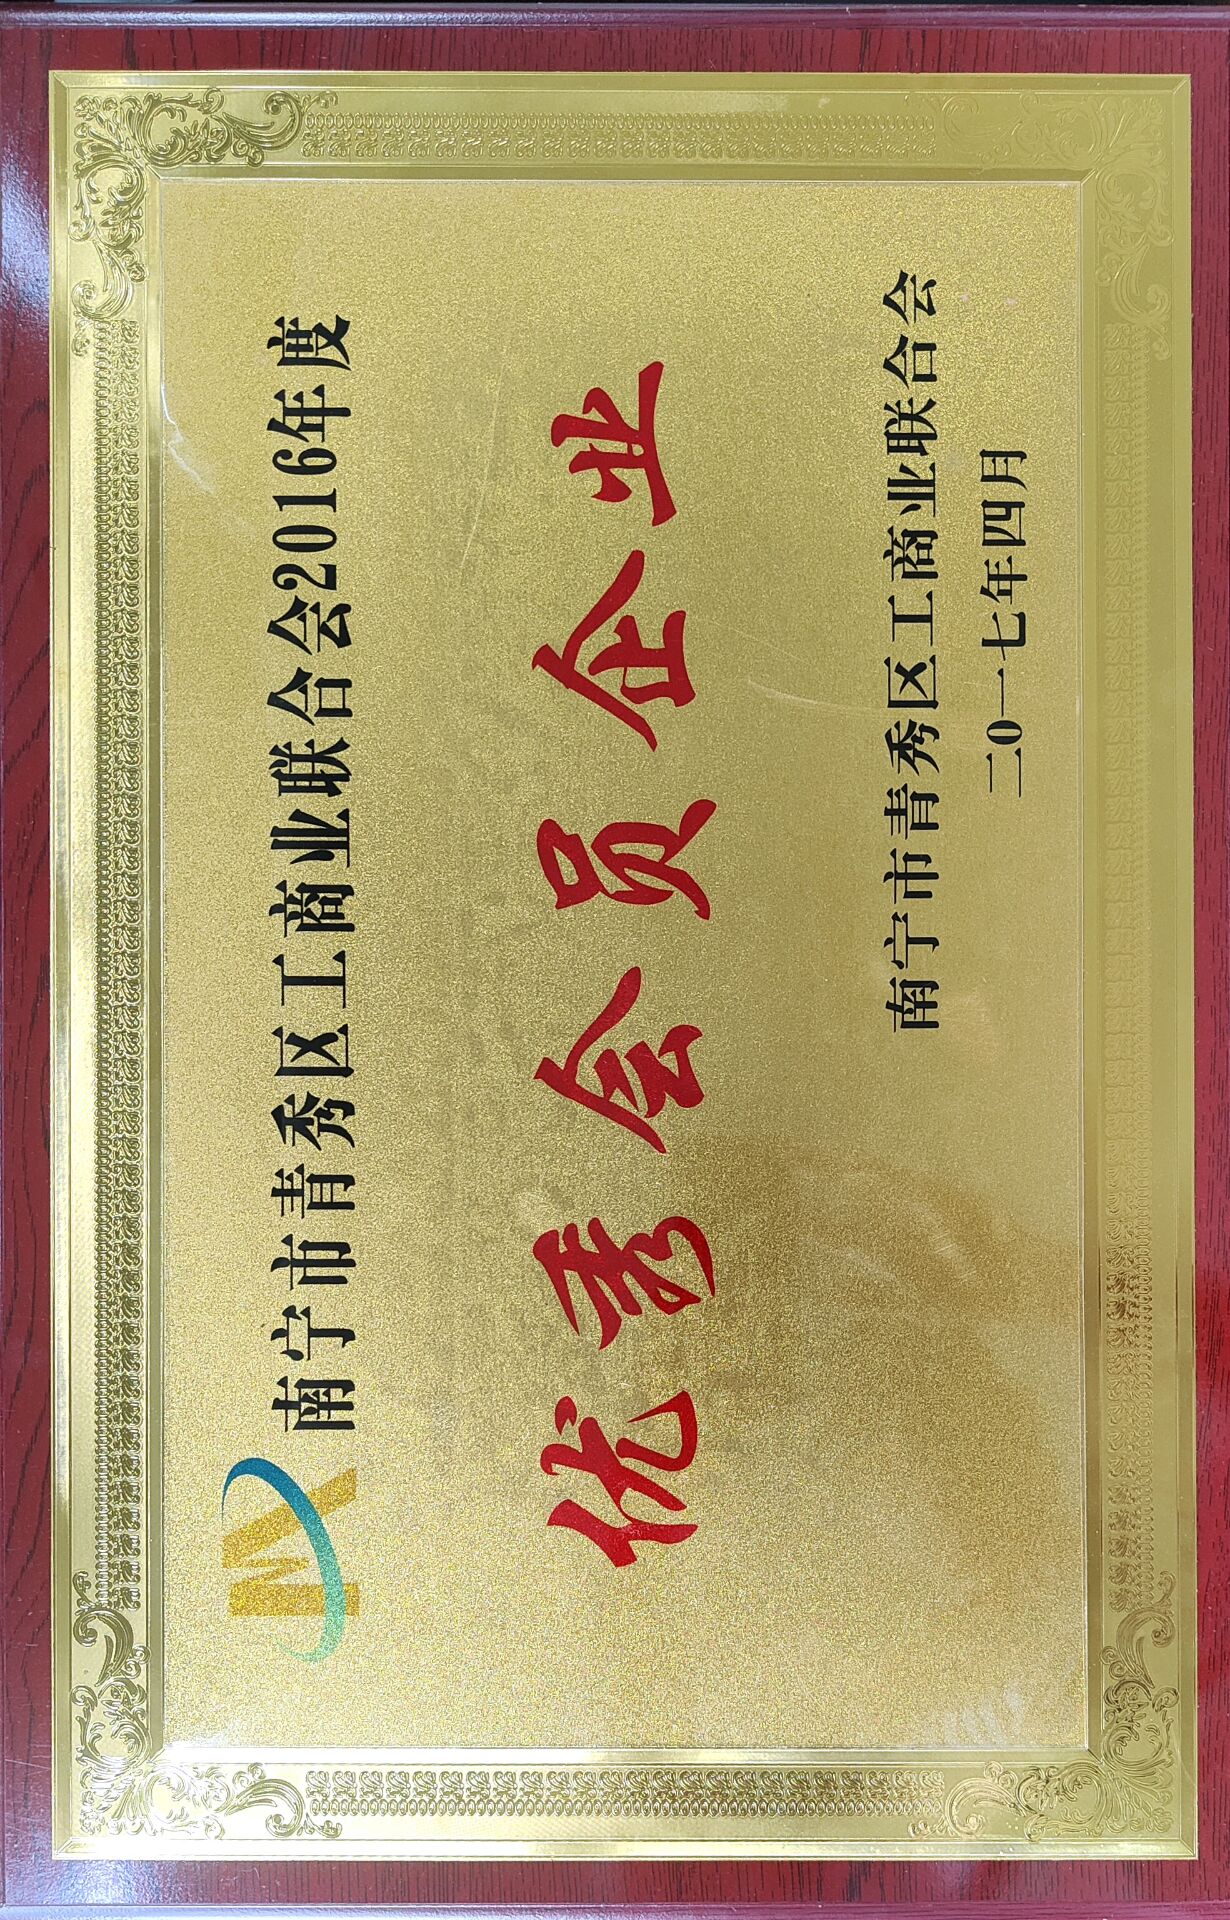 南宁市青秀区工商业联合会2016年度
优秀会员企业
南宁市青秀区工商业联合会
二0一七年四月